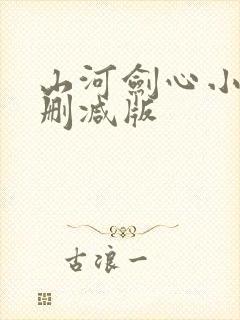 山河劍心小
刪减版
古浪一